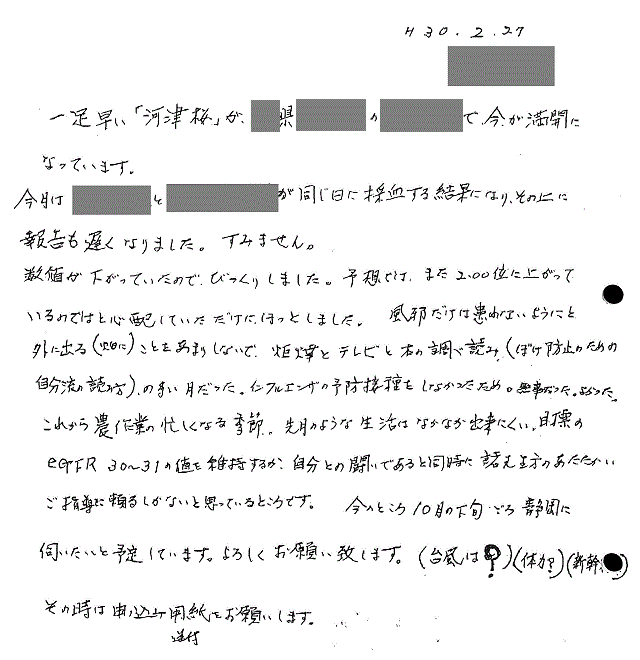 H30.2.27
一足早い「河津桜」が、県ので、今が満開に
なっています。
今月はとが同じ日に採血する結果になり、その上に
報告も遅くなりました。すみません。
数値が下がっていたので、びっくりしました。予想では、また2.00位に上がって
いるのではと心配していただけに、ほっとしました。風邪だけは患わないようにと
外に出ることをあまりしないで、炬燵とテレビと本の調べ読み、(ぼけ防止のための
自分流の読み方)、のまい月だった。インフルエンザの予防接種をしなかったため。無事だった。よかった。
これから農作業の忙しくなる季節。先月のような生活はなかなか出来にくい。目標の
eGFR 30~31の値を維持するか、自分との闘いであると同時に諸先生方のあたたかい
ご指導に頼るしかないと思っているところです。今のところ10月の下旬ごろ静岡に
伺いたいと予定しています。よろしくお願い致します。(台風は?)(体力?)(新幹
その時は申し込み用紙をお願いします。
送付